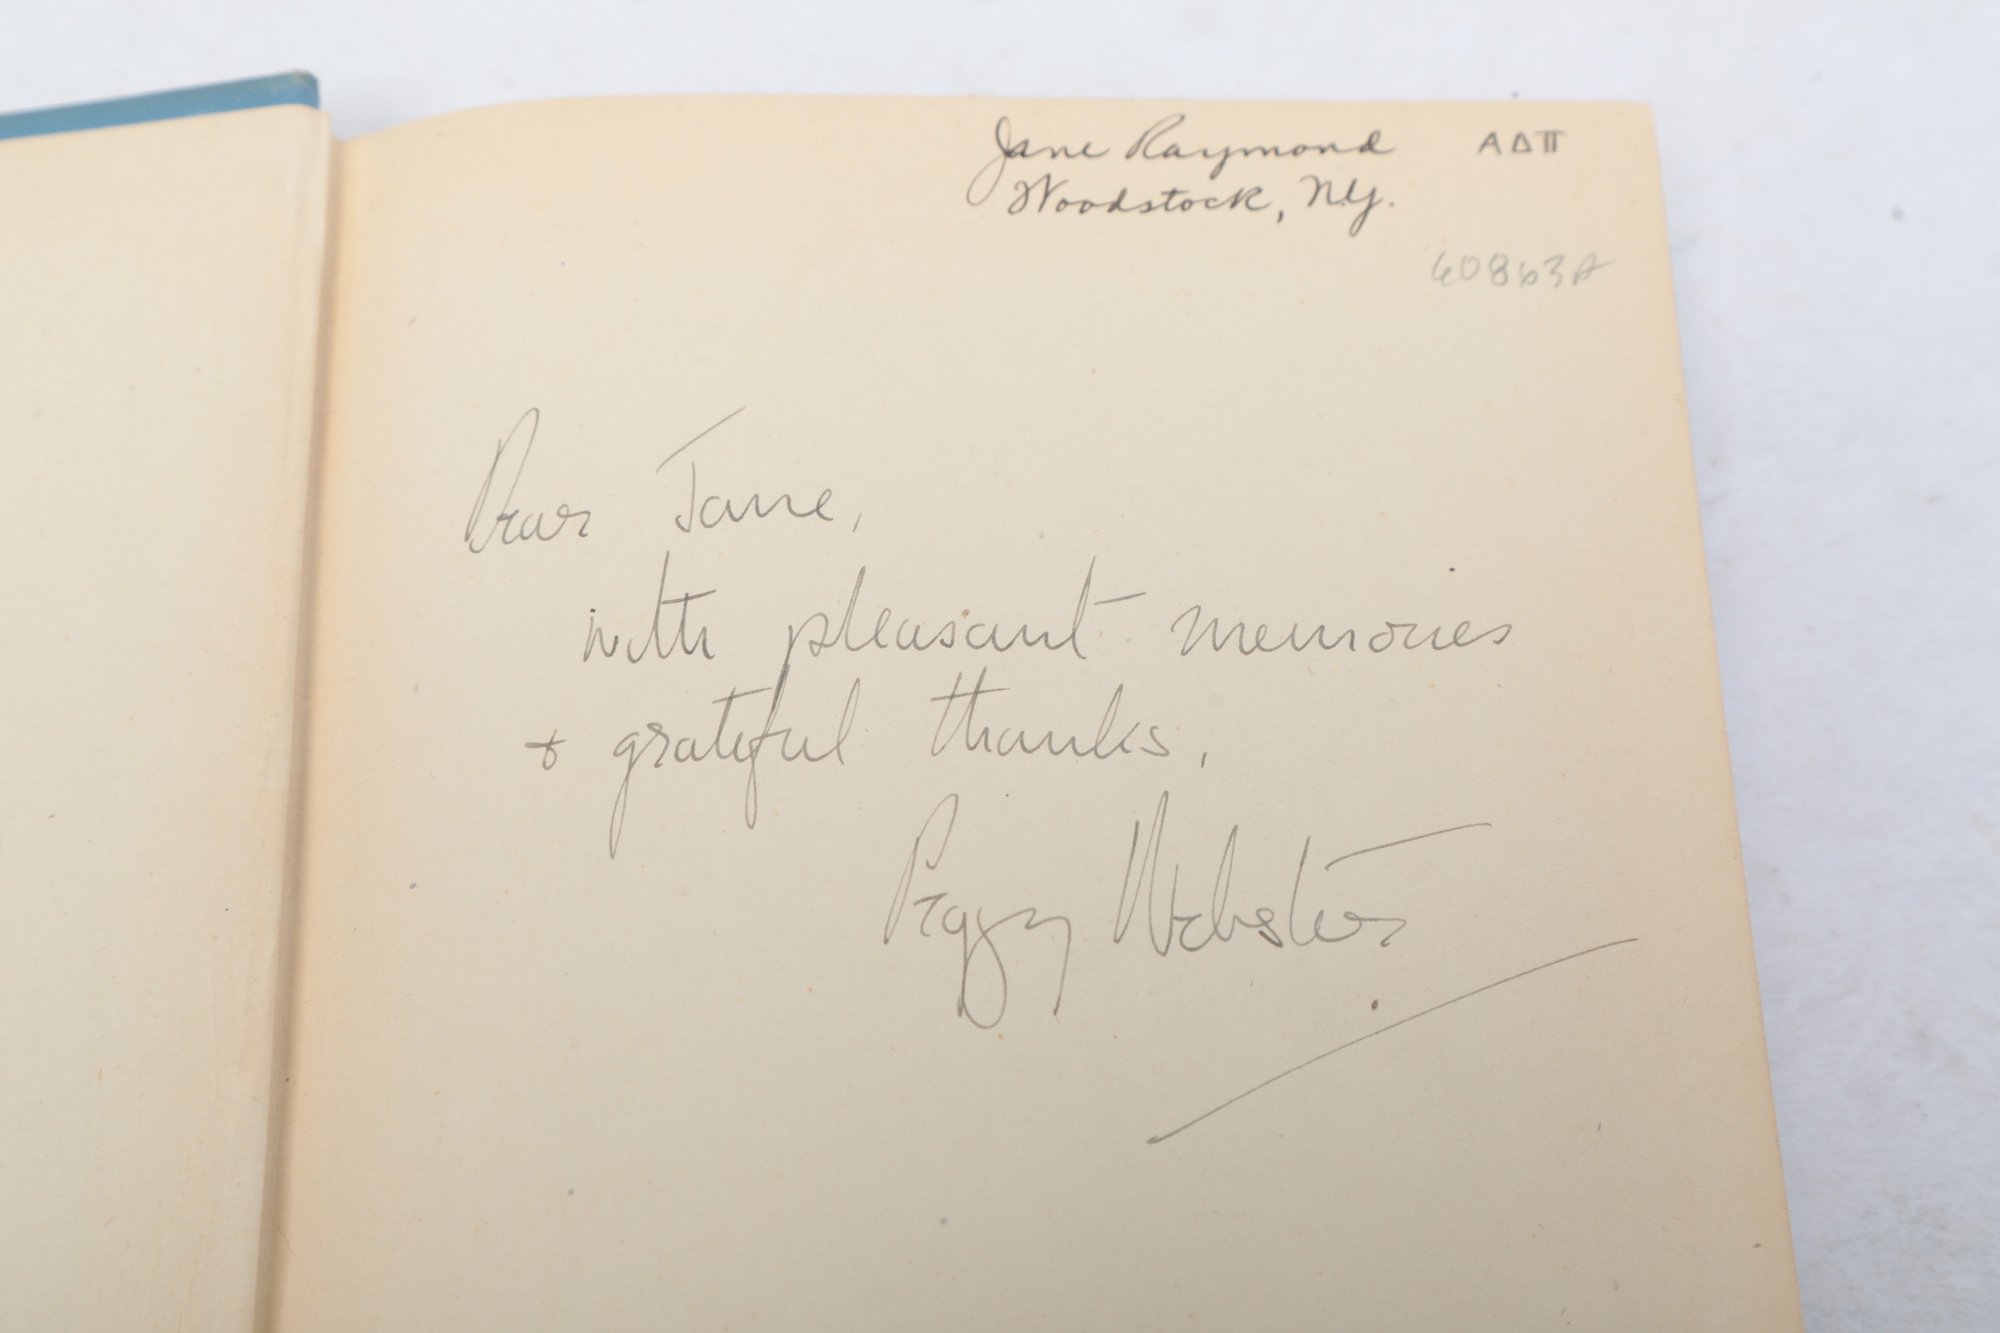 Jane Raymond AΔΠ
Woodstock, N.Y.
60863A
Dear Jane,
with pleasant memories
+ grateful thanks,
Peggy Webster